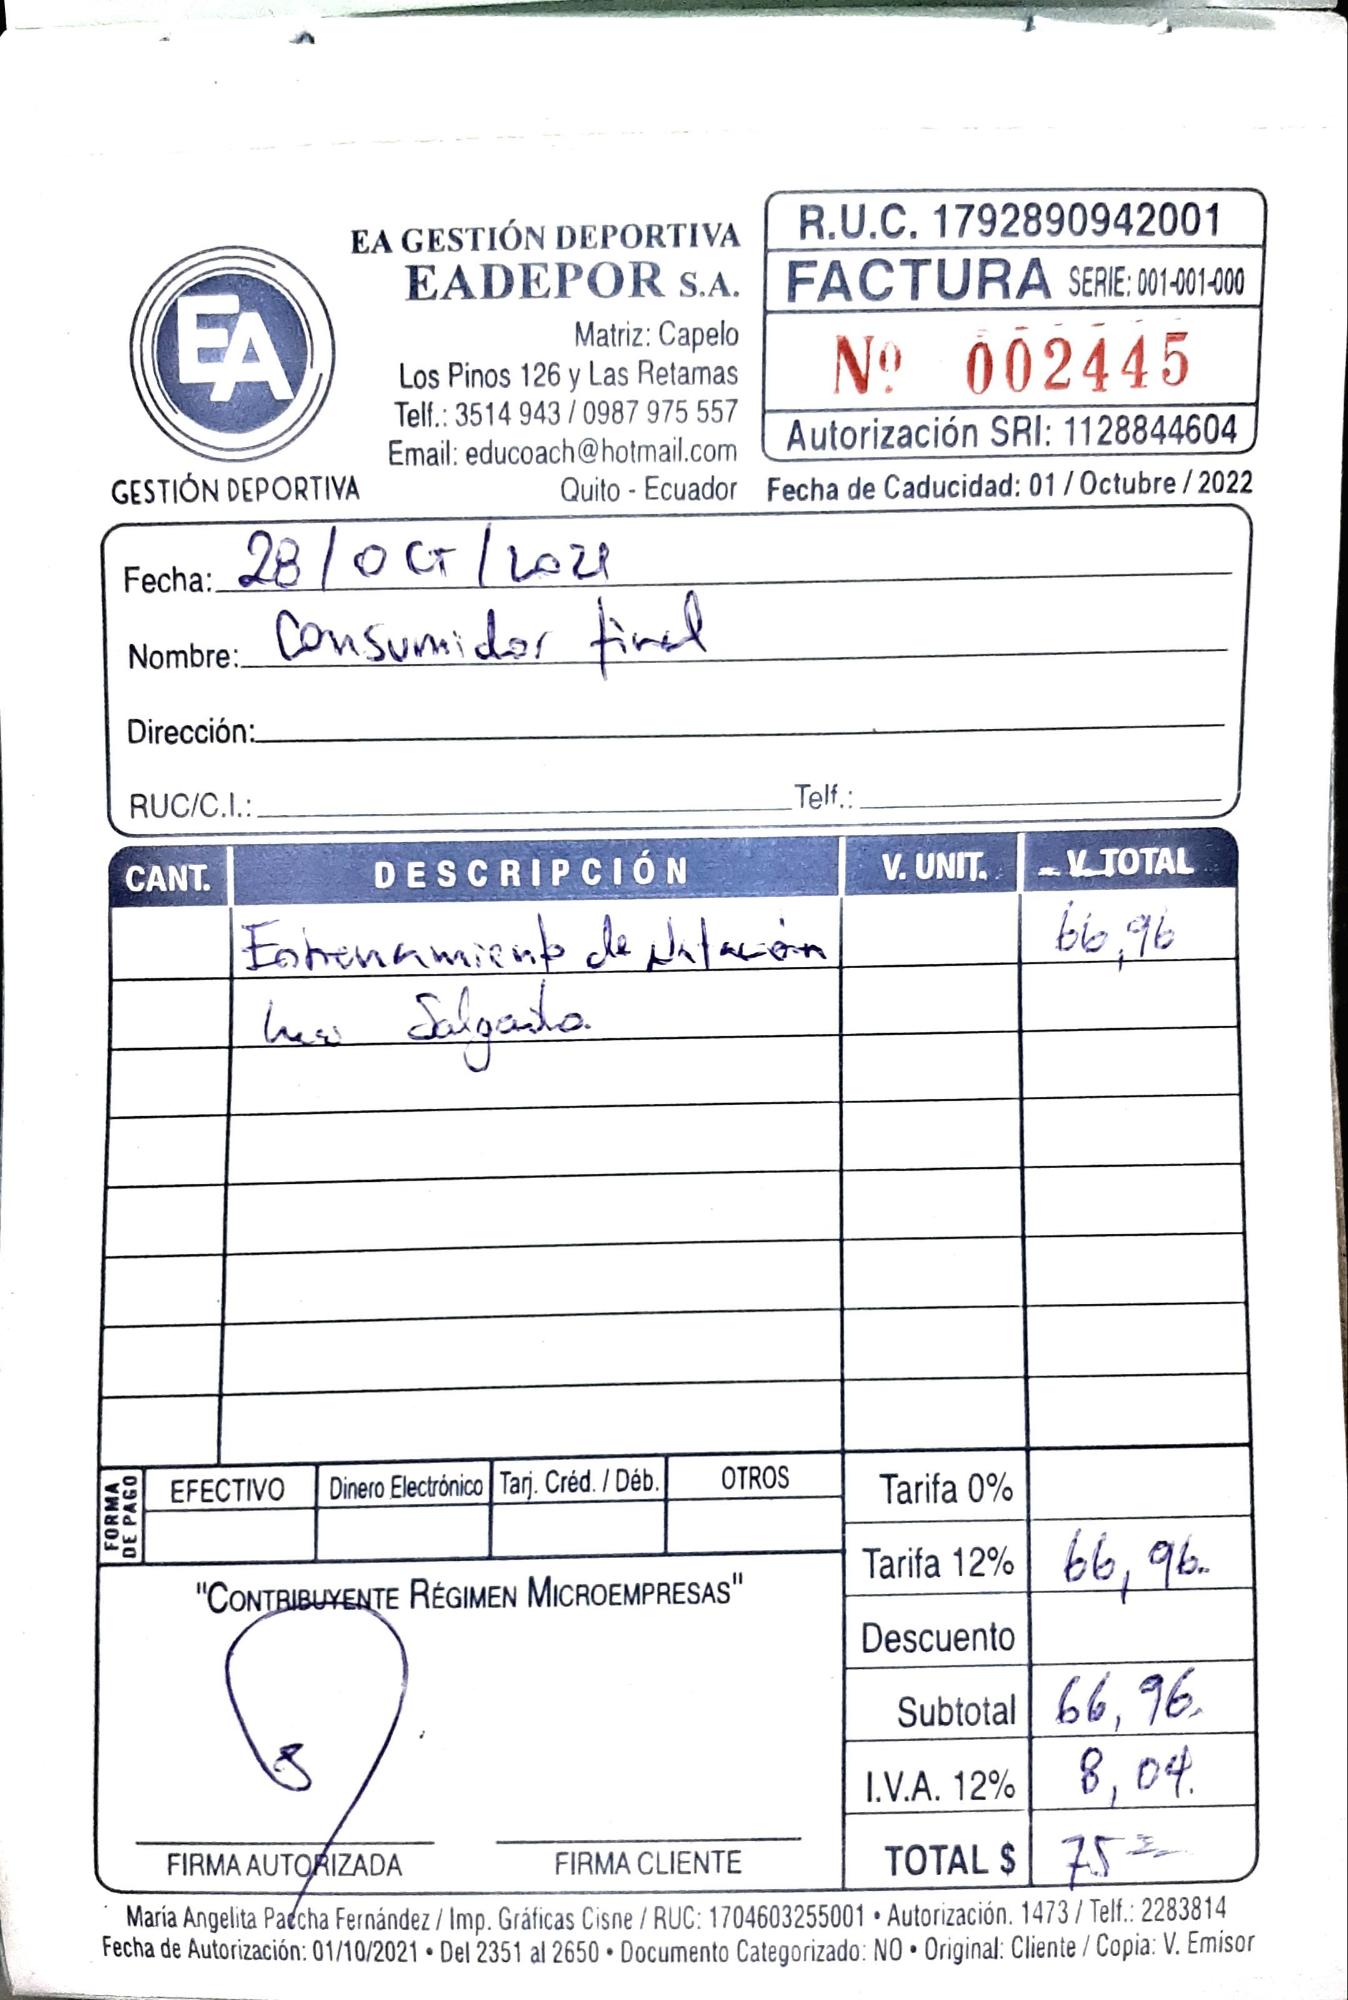 EA GESTIÓN DEPORTIVA
EADEPOR S.A.
Matriz: Capelo
Los Pinos 126 y Las Retamas
Telf.: 3514 943 / 0987 975 557
Email: educoach@hotmail.com
Quito - Ecuador
EA
GESTIÓN DEPORTIVA
R.U.C. 1792890942001
FACTURA SERIE: 001-001-000
Nº 002445
Autorización SRI: 1128844604
Fecha de Caducidad: 01 / Octubre / 2022
Fecha: 28/OCT/2021
Nombre: Consumidor final
Dirección:
RUC/C.I.: Telf.:
CANT. DESCRIPCIÓN V. UNIT. V. TOTAL
Entrenamiento de Natación 66,96
Salgado.
FORMA DE PAGO
EFECTIVO Dinero Electrónico Tarj. Créd. / Déb. OTROS
Tarifa 0%
Tarifa 12% 66,96.
Descuento
Subtotal 66,96.
I.V.A. 12% 8,04.
TOTAL $ 75
"CONTRIBUYENTE RÉGIMEN MICROEMPRESAS"
FIRMA AUTORIZADA FIRMA CLIENTE
María Angelita Paccha Fernández / Imp. Gráficas Cisne / RUC: 1704603255001 • Autorización. 1473 / Telf.: 2283814
Fecha de Autorización: 01/10/2021 • Del 2351 al 2650 • Documento Categorizado: NO • Original: Cliente / Copia: V. Emisor